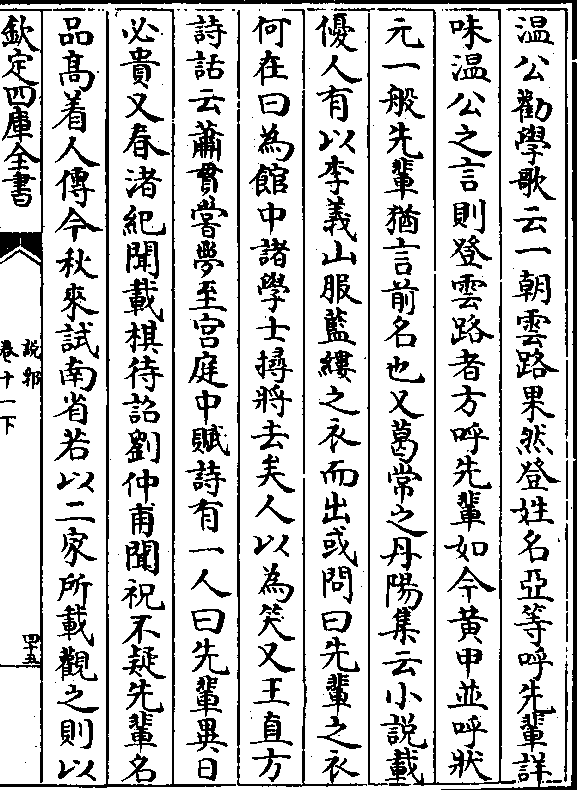 温公勸學歌云一朝雲路果然登姓名亞等呼先輩詳
味温公之言則登雲路者方呼先輩如今黄甲並呼狀
元一般先輩猶言前名也又葛常之丹陽集云小說載
優人有以李義山服藍縷之衣而出或問曰先輩之衣
何在曰為館中諸學士撏將去矣人以為笑又王直方
詩話云蕭貫嘗夢至宫庭中賦詩有一人曰先輩異日
必貴又春渚紀聞載棋待詔劉仲甫聞祝不疑先輩名
品髙着人傳今秋來試南省若以二家所載觀之則以
欽定四庫全書
說郛
卷十一下
四十五